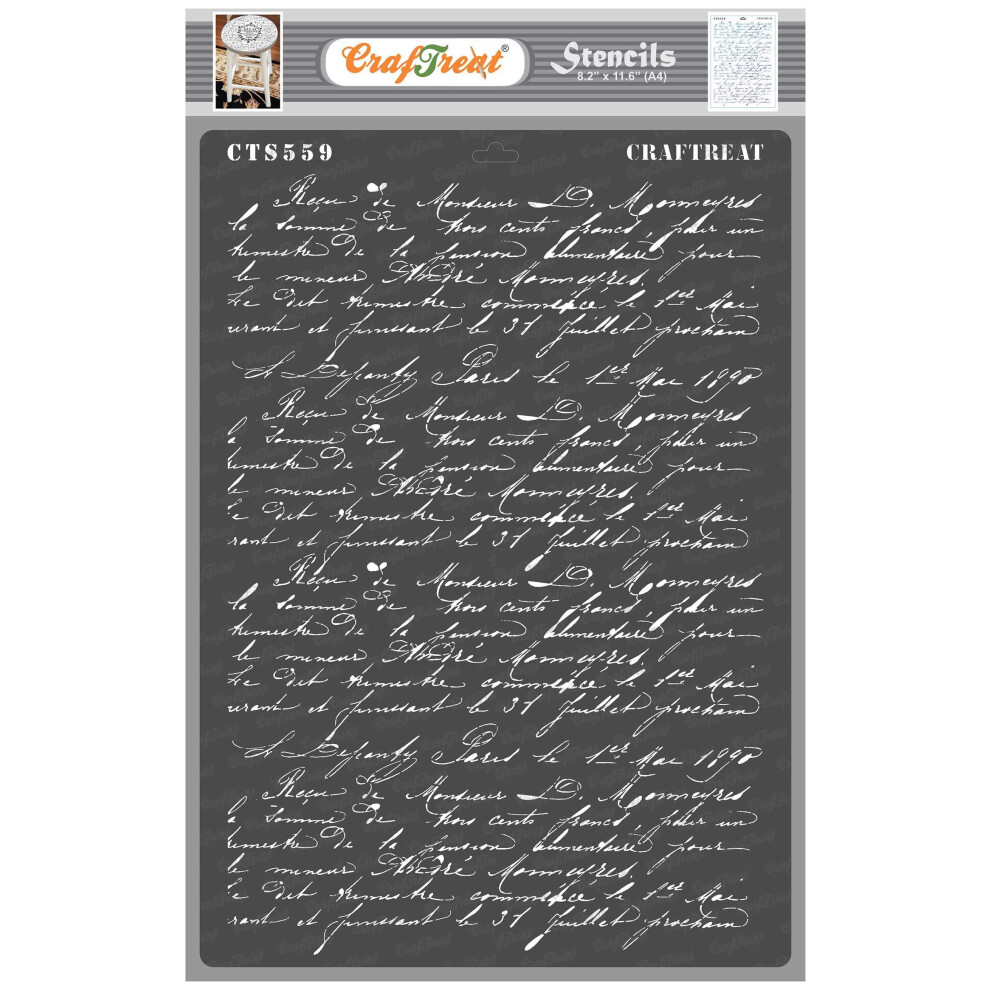 CrafTreat®
Stencils
8.2" x 11.6" (A4)
CTS559
CRAFTREAT
Reçu de Monsieur D. Monmeyres
la somme de trois cents francs, pour un
trimestre de la pension alimentaire pour
le mineur André Monmeyres.
Le dit trimestre commence le 1er Mai
urant et finissant le 31 Juillet prochain
Paris le 1er Mai 1890
Reçu de Monsieur D. Monmeyres
a somme de trois cents francs, pour un
rimestre de la pension alimentaire pour
le mineur André Monmeyres.
e dit trimestre commence le 1er Mai
rant et finissant le 31 Juillet prochain
Reçu de Monsieur D. Monmeyres
la somme de trois cents francs, pour un
trimestre de la pension alimentaire pour
le mineur André Monmeyres.
Le dit trimestre commence le 1er Mai
urant et finissant le 31 Juillet prochain
Paris le 1er Mai 1890
Reçu de Monsieur D. Monmeyres
a somme de trois cents francs, pour un
rimestre de la pension alimentaire pour
le mineur André Monmeyres.
e dit trimestre commence le 1er Mai
rant et finissant le 31 Juillet prochain